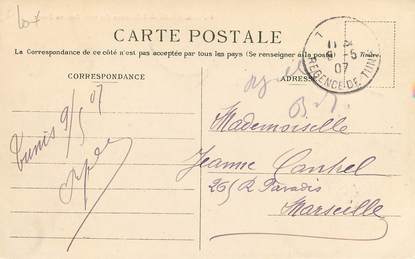 CARTE POSTALE
La Correspondance de ce côté n'est pas acceptée par tous les pays (Se renseigner à la poste)
CORRESPONDANCE
ADRESSE
Timbre
9 -5
07
REGENCE-DE-TUN
Tunis 9/5 07
Mademoiselle
Jeanne
265 R Paradis
Marseille